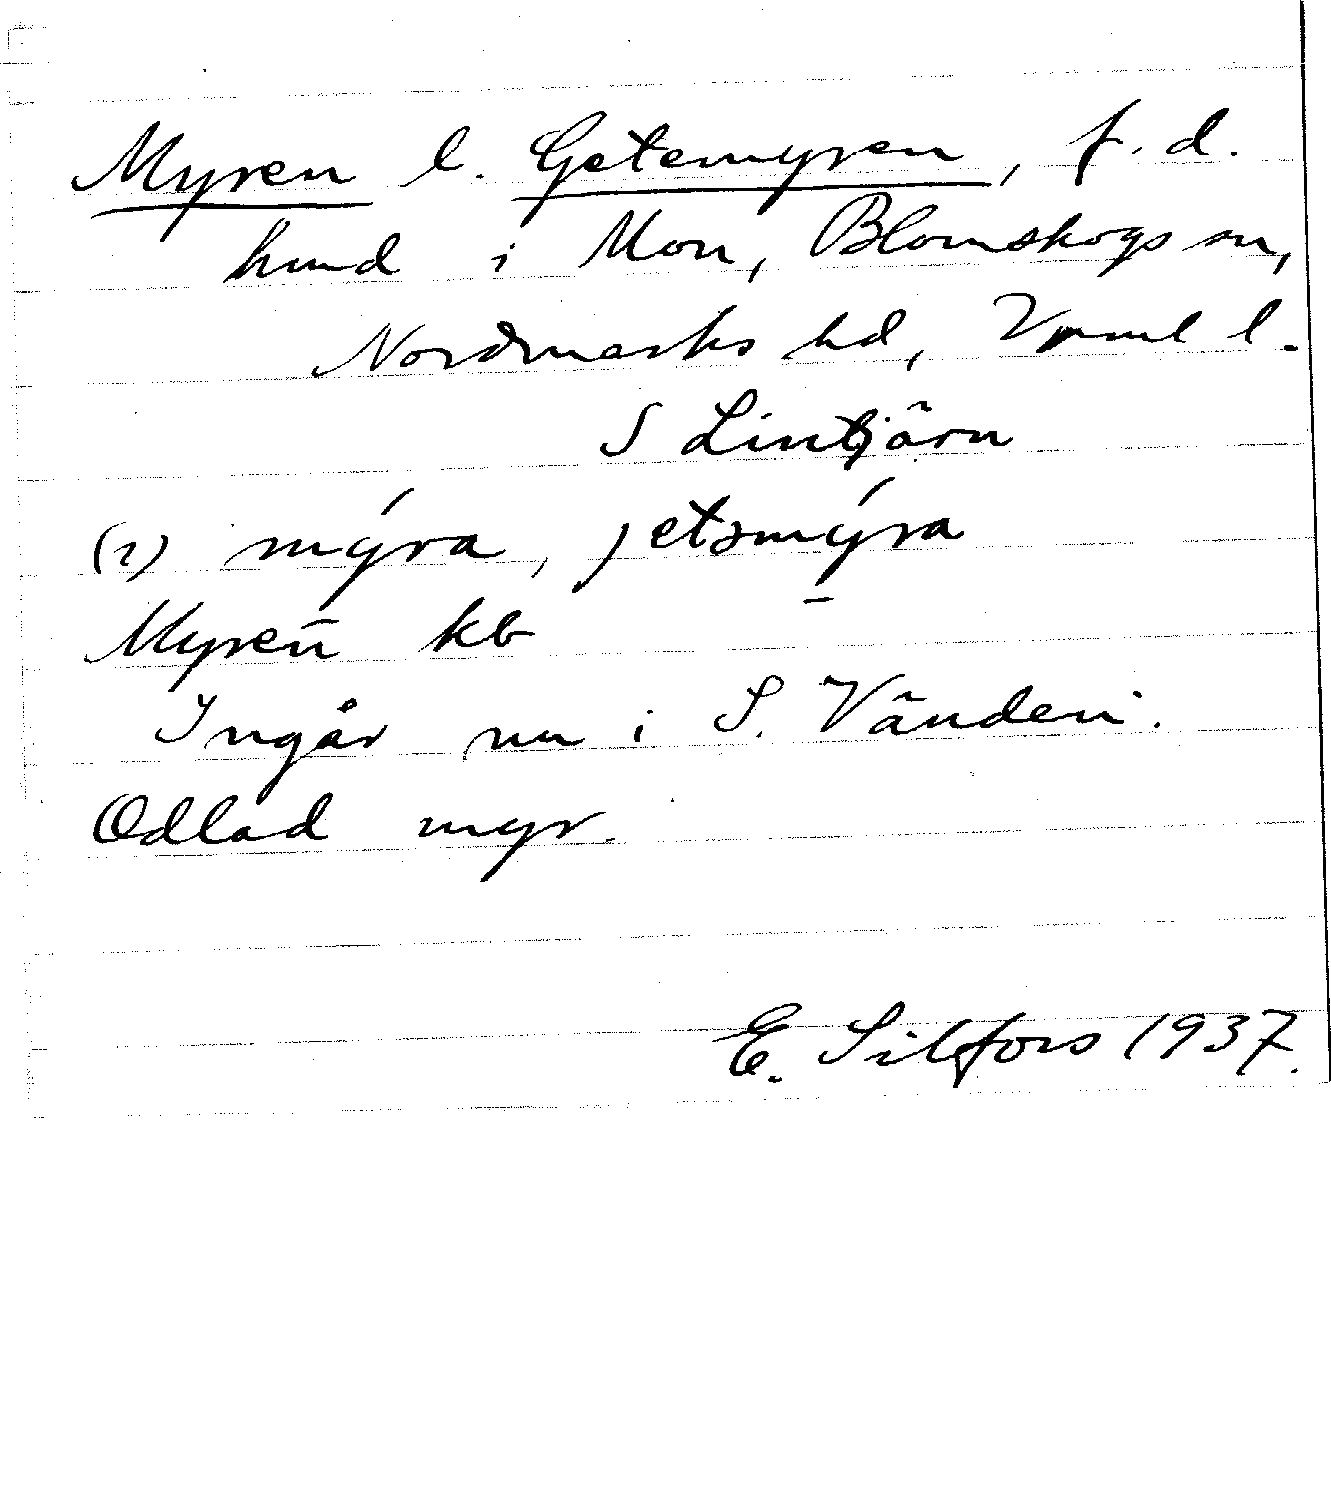 Myren l. Getemyren, f. d.
hmd i Mon, Blomskogs sn,
Nordmarks hd, Vrml l.
S Lintjärn
(1) mýra, jetəmýra
Myren̄ kb
Ingår nu i S. Vänden.
Odlad myr.
E. Silfors 1937.